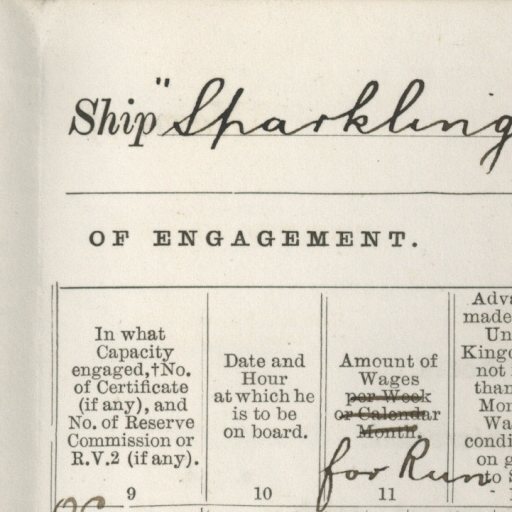 Ship "Sparkling
OF ENGAGEMENT.
In what
Capacity
engaged,†No.
of Certificate
(if any), and
No. of Reserve
Commission or
R.V.2 (if any).
9
Date and
Hour
at which he
is to be
on board.
10
Amount of
Wages
per Week
or Calendar
Month.
for Run
11
Adva
made
Un
Kingd
not
than
Mon
Wa
condi
on g
to s